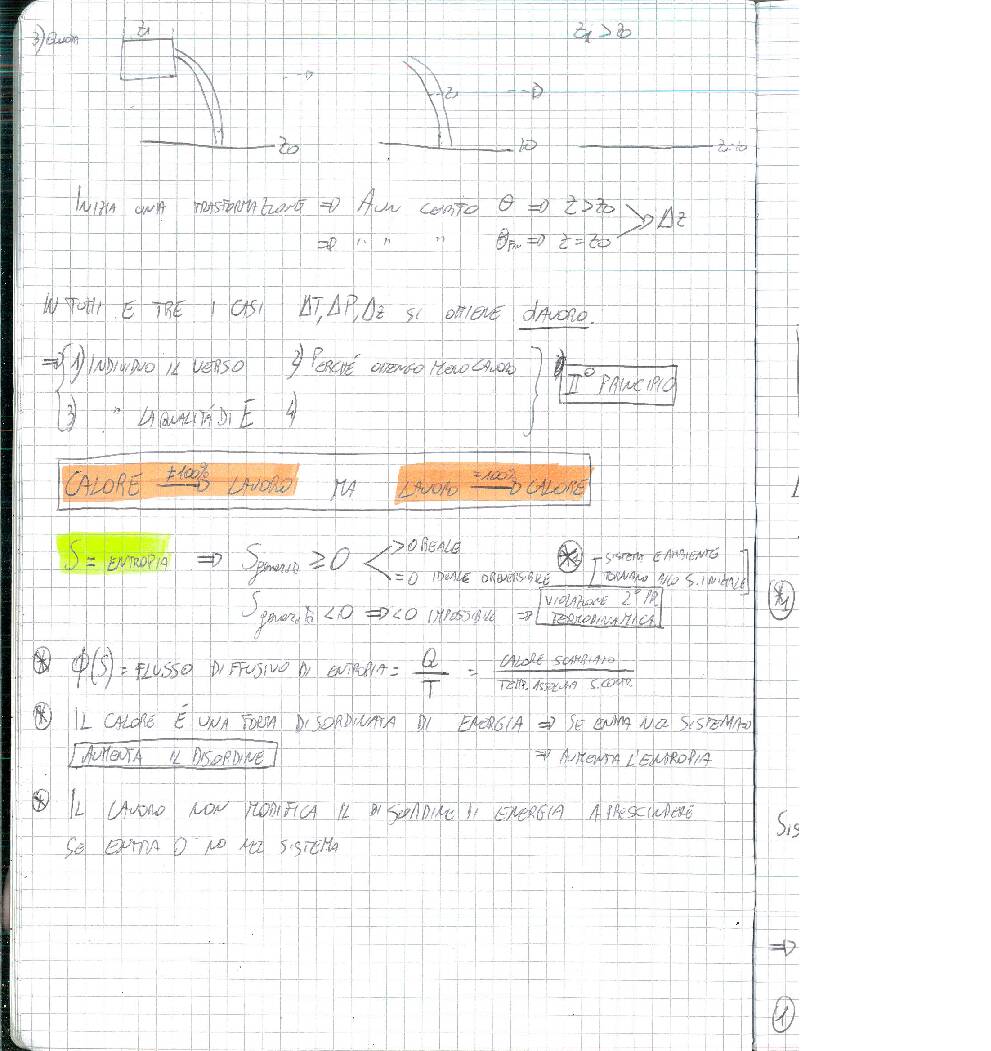 3)
z1
z1 > z0
z
z0
z0
z=z0
INIZIA UNA TRASFORMAZIONE ⇒ A UN CERTO θ ⇒ z>z0
⇒ " " " θFIN ⇒ z=z0
Δz
IN TUTTI E TRE I CASI ΔT, ΔP, Δz SI OTTIENE LAVORO.
⇒ 1) INDIVIDUO IL VERSO 2) PERCHÉ OTTENGO MENO LAVORO
3) " LA QUALITÁ DI E 4)
II° PRINCIPIO
CALORE ≠100% → LAVORO MA LAVORO =100% → CALORE
S = ENTROPIA ⇒ Sgenerata ≥ 0
>0 REALE
=0 IDEALE O REVERSIBILE
* [SISTEMA E AMBIENTE
TORNANO ALLO S. INIZIALE]
Sgenerata <0 ⇒ <0 IMPOSSIBILE ⇒ VIOLAZIONE 2° PR.
TERMODINAMICA
*1
* ϕ(S) = FLUSSO DIFFUSIVO DI ENTROPIA = Q/T = CALORE SCAMBIATO / TEMP. ASSOLUTA S. CONT.
* IL CALORE É UNA FORMA DISORDINATA DI ENERGIA ⇒ SE ENTRA NEL SISTEMA ⇒
AUMENTA IL DISORDINE ⇒ AUMENTA L'ENTROPIA
* IL LAVORO NON MODIFICA IL DISORDINE DI ENERGIA A PRESCINDERE
SE ENTRA O NO NEL SISTEMA
SIS
⇒
1